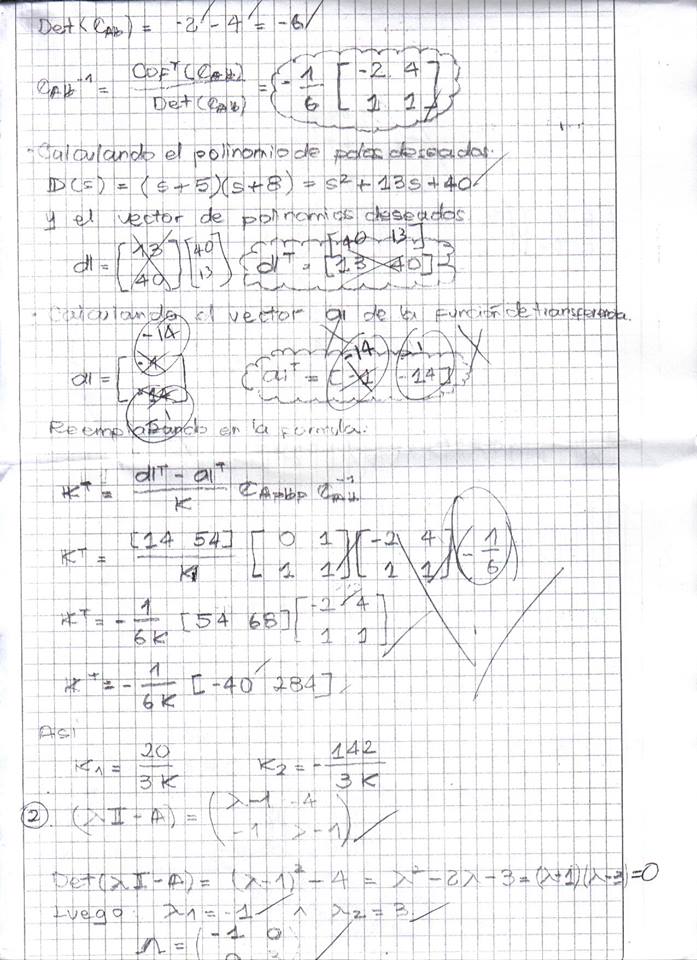 Det(ℂAb) = -2 - 4 = -6
ℂAb⁻¹ = Cofᵀ(ℂAb) / Det(ℂAb) = -1/6 [-2 4; 1 1]
Calculando el polinomio de polos deseados.
D(s) = (s+5)(s+8) = s² + 13s + 40
y el vector de polinomios deseados
dl = [13; 40] [40; 13] dlᵀ = [40 13] [13 40]
Calculando el vector al de la función de transferencia.
-14 -14 1
al = [-1; -14] alᵀ = [-1 -14]
1
Reemplazando en la formula:
Kᵀ = (dlᵀ - alᵀ) / K ℂAbp ℂAb⁻¹
Kᵀ = [14 54] / K [0 1; 1 1] [-2 4; 1 1] (-1/6)
Kᵀ = -1/6K [54 68] [-2 4; 1 1]
Kᵀ = -1/6K [-40 284]
Asi
K₁ = 20/3K K₂ = -142/3K
2 (λI - A) = (λ-1 -4; -1 λ-1)
Det(λI - A) = (λ-1)² - 4 = λ² - 2λ - 3 = (λ+1)(λ-3) = 0
Luego: λ₁ = -1 ∧ λ₂ = 3
Λ = (-1 0; 0 3)